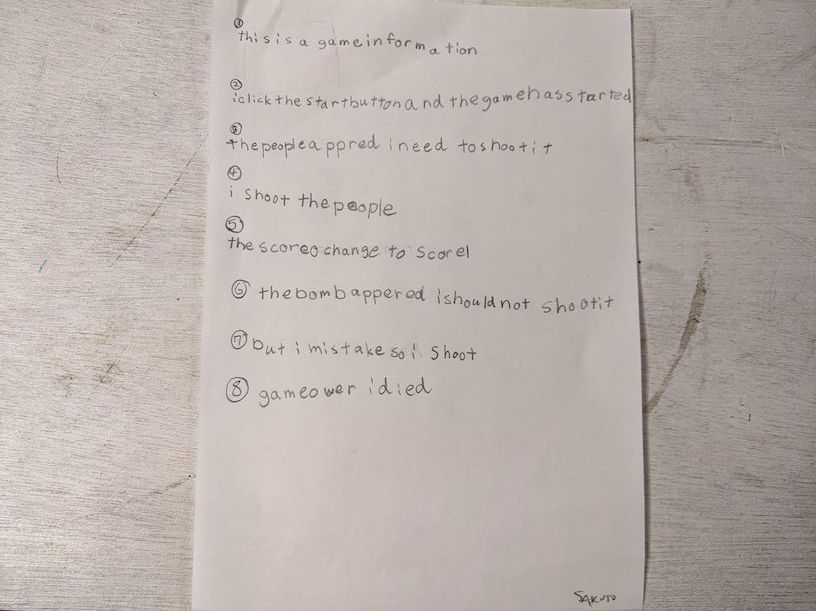 ①
this is a game information
②
i click the start button and the game has started
③
the people appred i need to shoot it
④
i shoot the people
⑤
the score0 change to score1
⑥ the bomb appered i should not shoot it
⑦ but i mistake so i shoot
⑧ game ower i died
SAKUTO